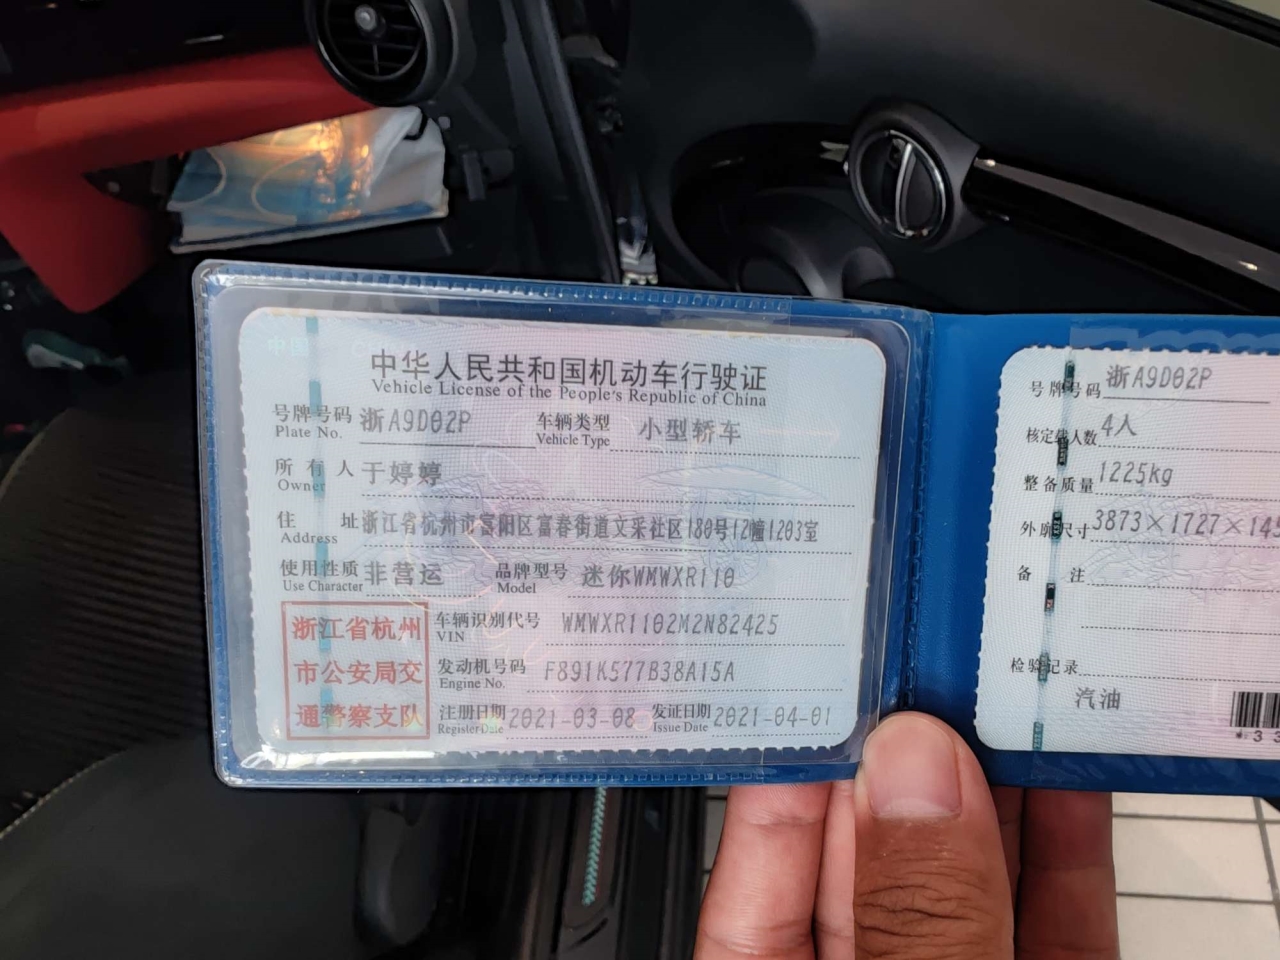 中华人民共和国机动车行驶证
Vehicle License of the People's Republic of China
号牌号码 浙A9D02P 车辆类型 小型轿车
Plate No. Vehicle Type
所有人 于婷婷
Owner
住址 浙江省杭州市富阳区富春街道文采社区180号12幢1203室
Address
使用性质 非营运 品牌型号 迷你WMWXR110
Use Character Model
浙江省杭州
市公安局交
通警察支队
车辆识别代号 WMWXR1102M2N82425
VIN
发动机号码 F891K577B38A15A
Engine No.
注册日期 2021-03-08 发证日期 2021-04-01
Register Date Issue Date
号牌号码 浙A9D02P
核定载人数 4人
整备质量 1225kg
外廓尺寸 3873×1727×14
备注
检验记录
汽油